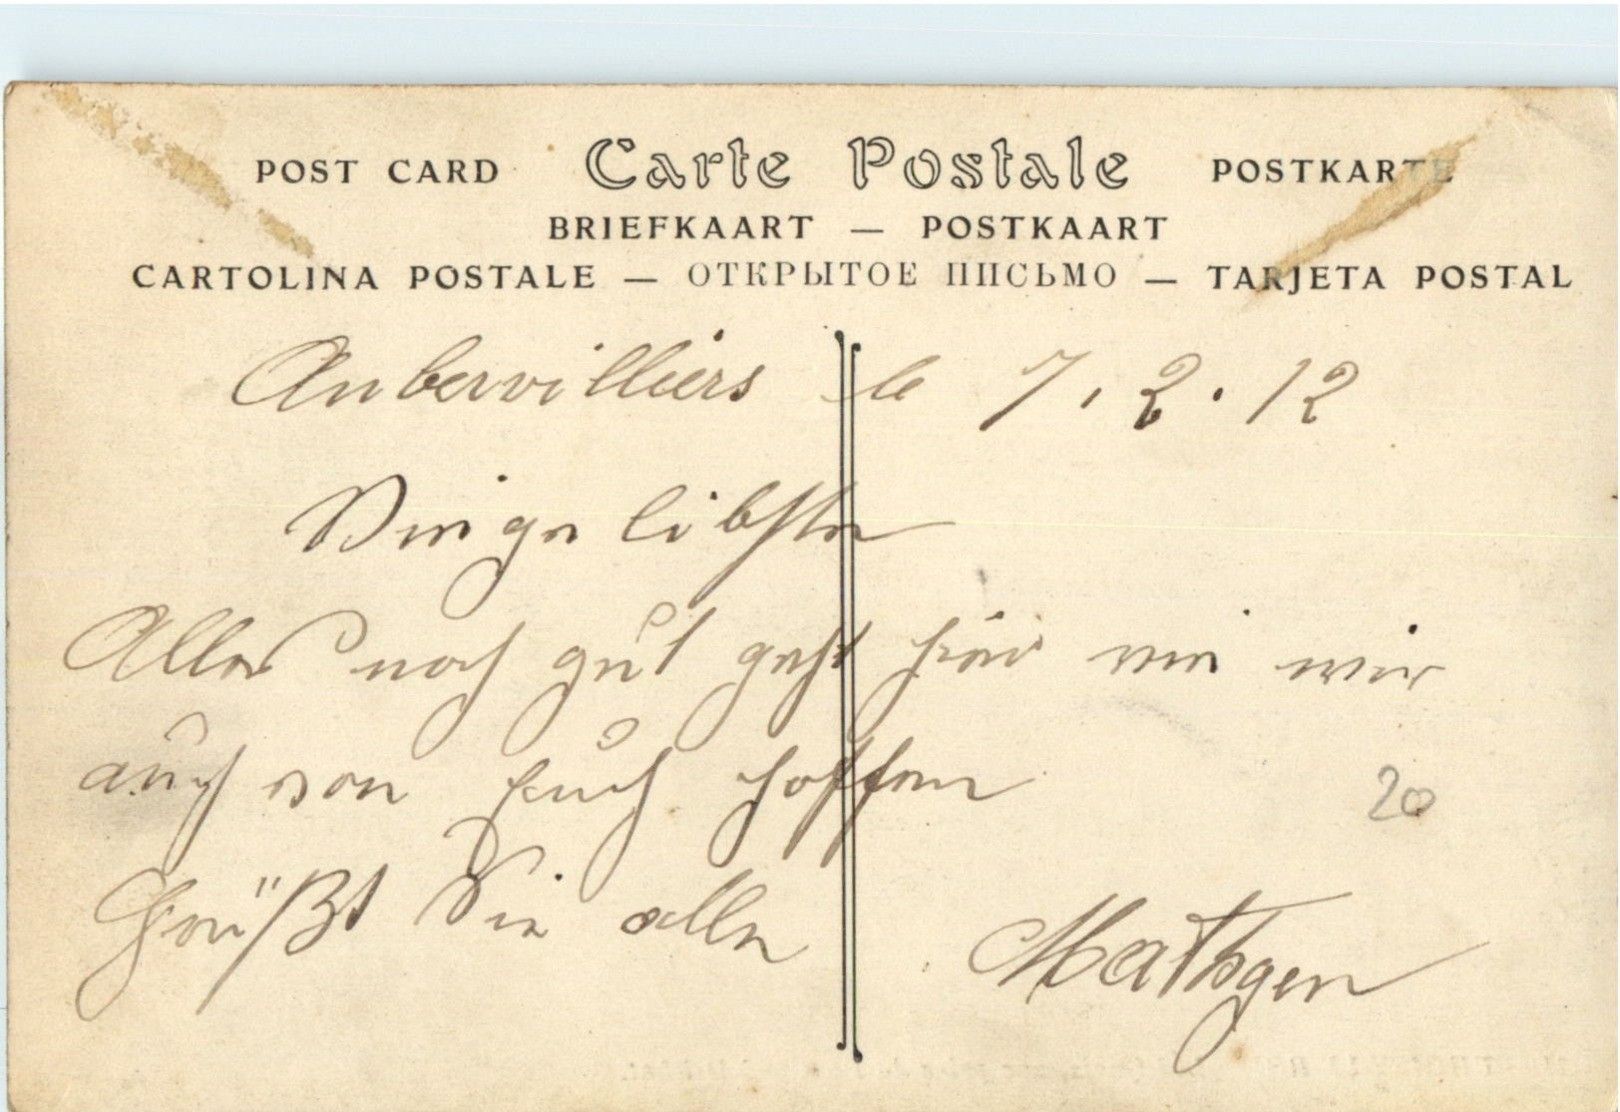 POST CARD Carte Postale POSTKARTE
BRIEFKAART — POSTKAART
CARTOLINA POSTALE — ОТКРЫТОЕ ПИСЬМО — TARJETA POSTAL
Aubervilliers le 7.2.12
libsten
Alles noch gut geht hier wie wir
auch von Euch hoffen
20
Grüßt Sie alle